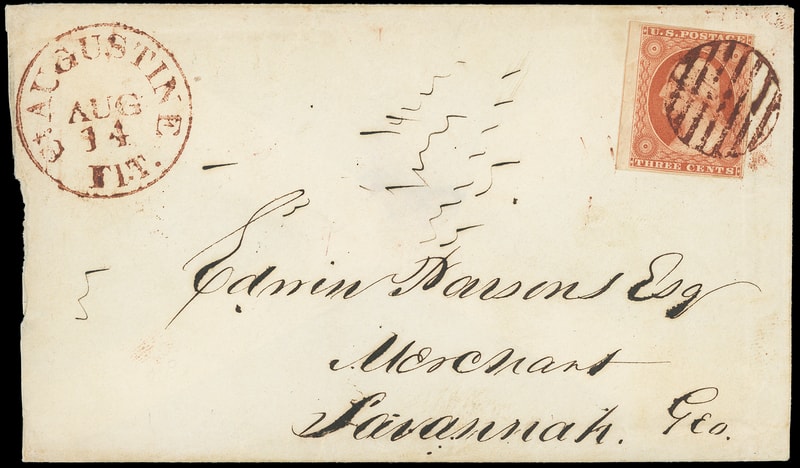 St. AUGUSTINE
AUG
14
Fl.T.
U.S. POSTAGE
THREE CENTS
Edwin Parsons Esq
Merchant
Savannah. Geo.